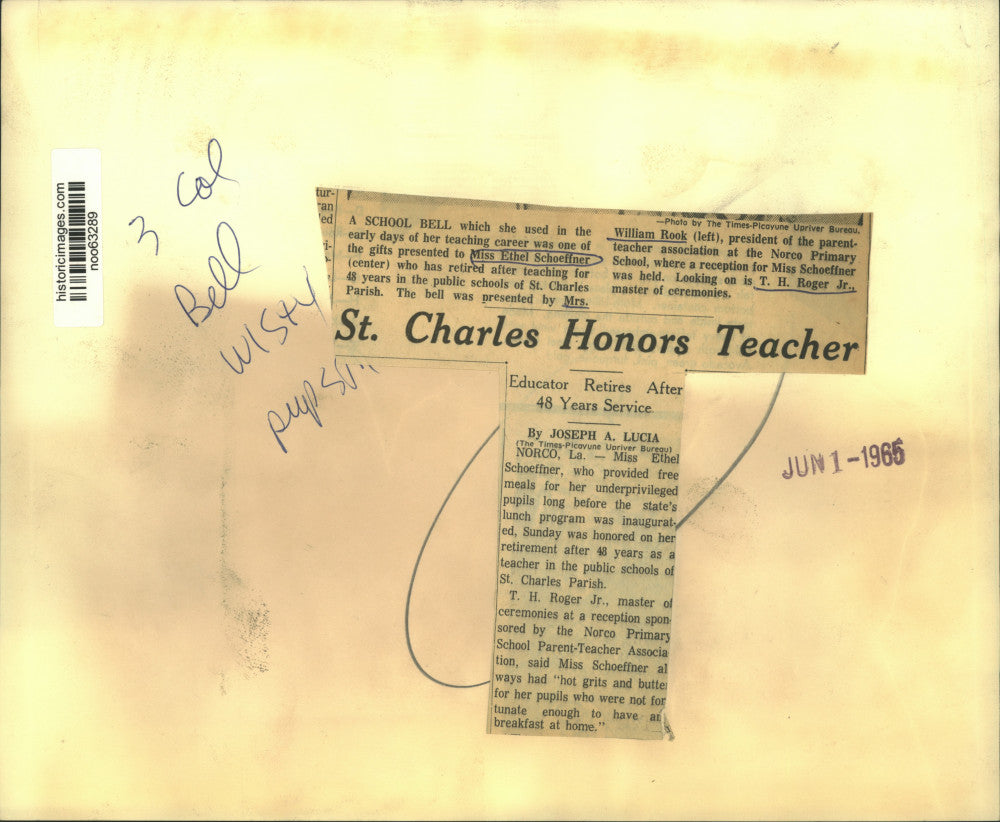 historicimages.com
noo63289
3 Col
Bell
W/Sty
JUN 1-1965
tur-
ran
led
ri-
A SCHOOL BELL which she used in the
early days of her teaching career was one of
the gifts presented to Miss Ethel Schoeffner
(center) who has retired after teaching for
48 years in the public schools of St. Charles
Parish. The bell was presented by Mrs.
—Photo by The Times-Picayune Upriver Bureau.
William Rook (left), president of the parent-
teacher association at the Norco Primary
School, where a reception for Miss Schoeffner
was held. Looking on is T. H. Roger Jr.,
master of ceremonies.
St. Charles Honors Teacher
Educator Retires After
48 Years Service
By JOSEPH A. LUCIA
(The Times-Picayune Upriver Bureau)
NORCO, La. — Miss Ethel
Schoeffner, who provided free
meals for her underprivileged
pupils long before the state's
lunch program was inaugurat-
ed, Sunday was honored on her
retirement after 48 years as a
teacher in the public schools of
St. Charles Parish.
T. H. Roger Jr., master of
ceremonies at a reception spon-
sored by the Norco Primary
School Parent-Teacher Associa
tion, said Miss Schoeffner al
ways had "hot grits and butter
for her pupils who were not for
tunate enough to have an
breakfast at home."